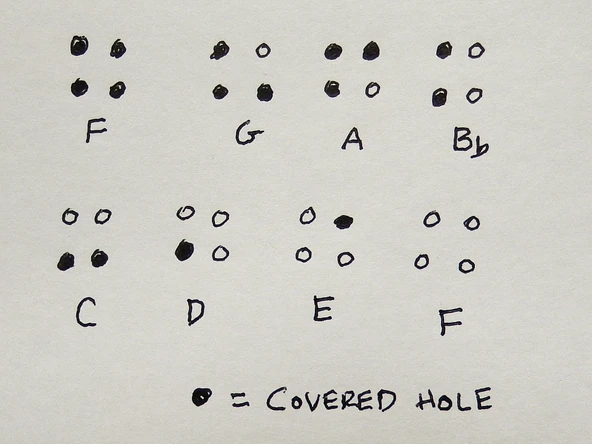 F G A Bb
C D E F
= COVERED HOLE